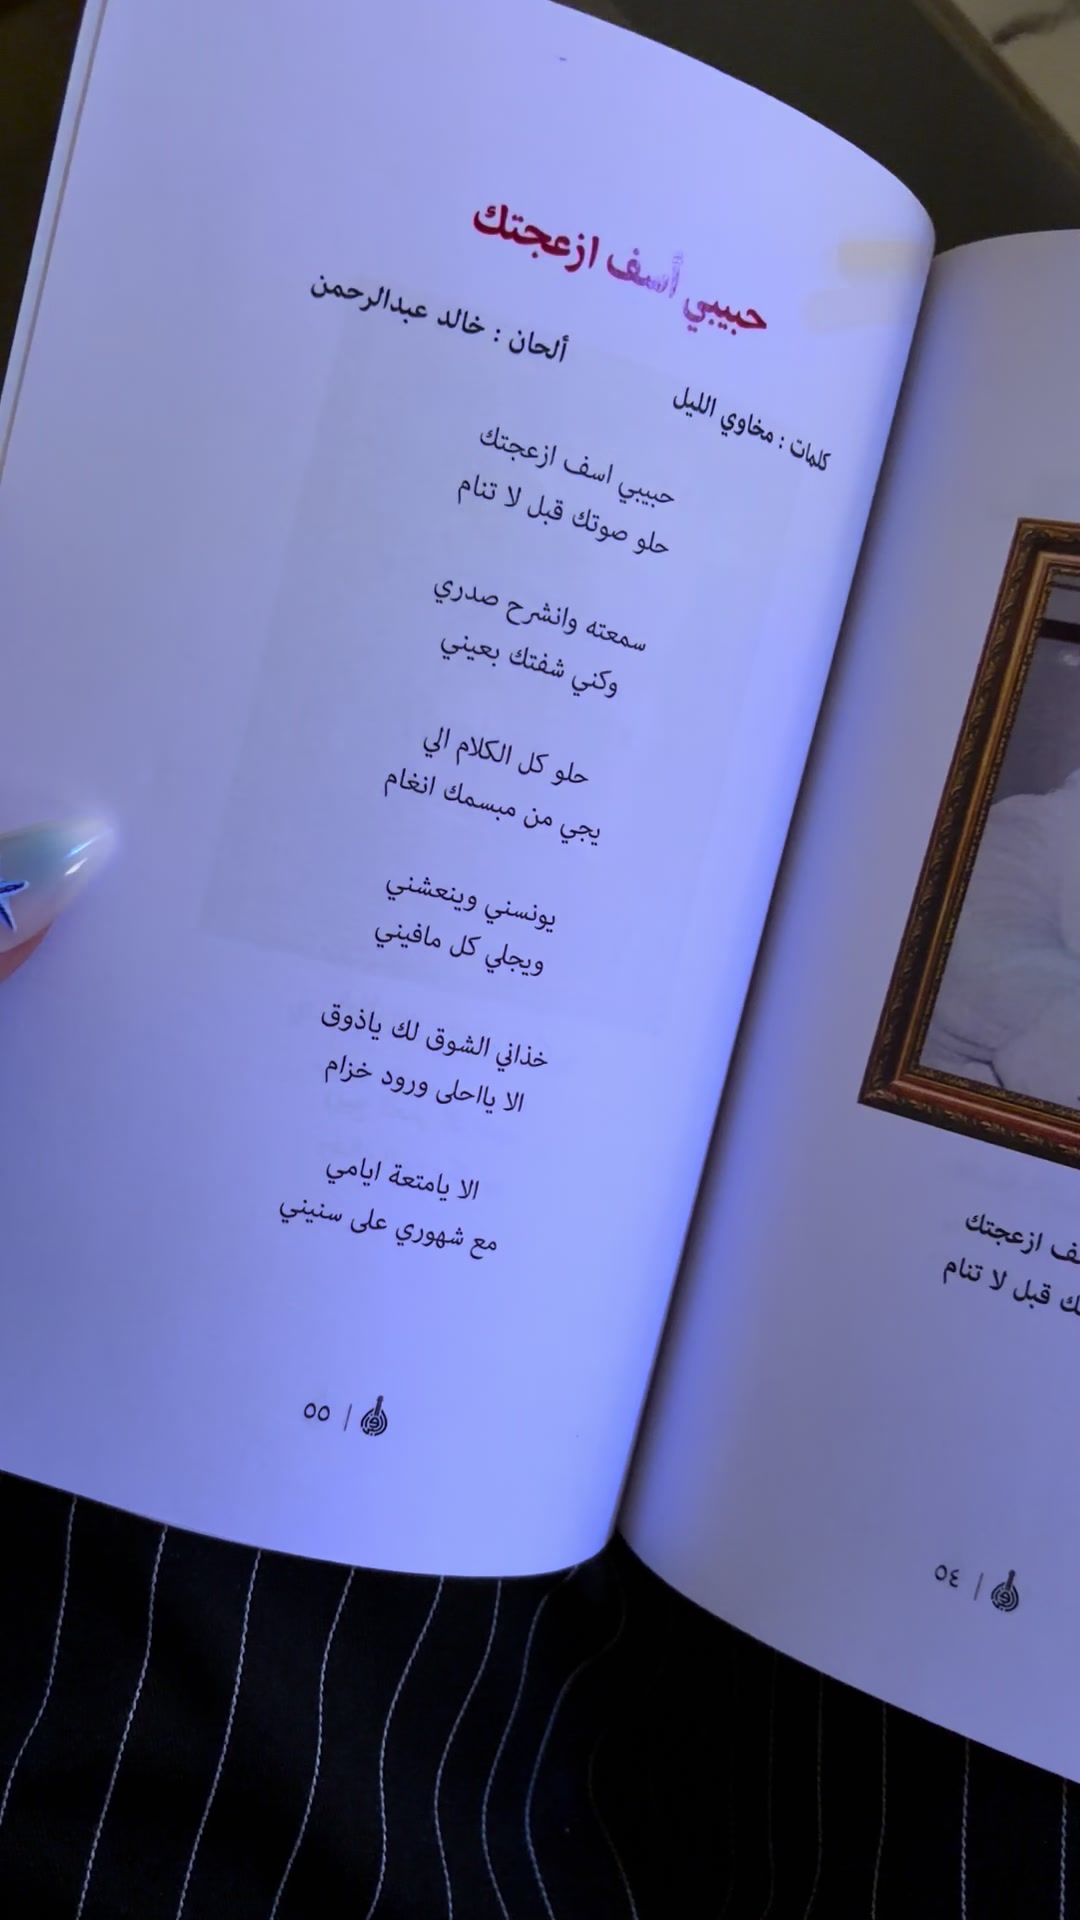 حبيبي أسف ازعجتك
كلمات : مخاوي الليل
ألحان : خالد عبدالرحمن
حبيبي اسف ازعجتك
حلو صوتك قبل لا تنام
سمعته وانشرح صدري
وكني شفتك بعيني
حلو كل الكلام الي
يجي من مبسمك انغام
يونسني وينعشني
ويجلي كل مافيني
خذاني الشوق لك ياذوق
الا يااحلى ورود خزام
الا يامتعة ايامي
مع شهوري على سنيني
٥٥
ازعجتك
قبل لا تنام
٥٤